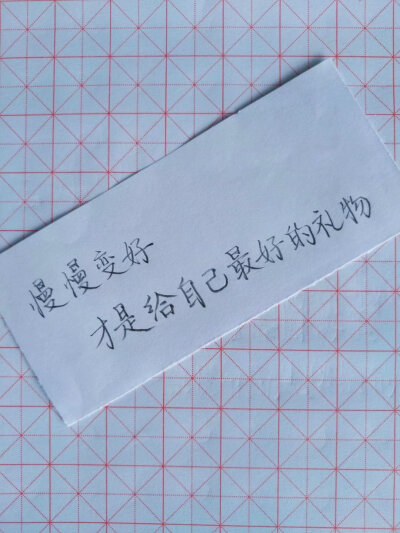 慢慢变好
才是给自己最好的礼物